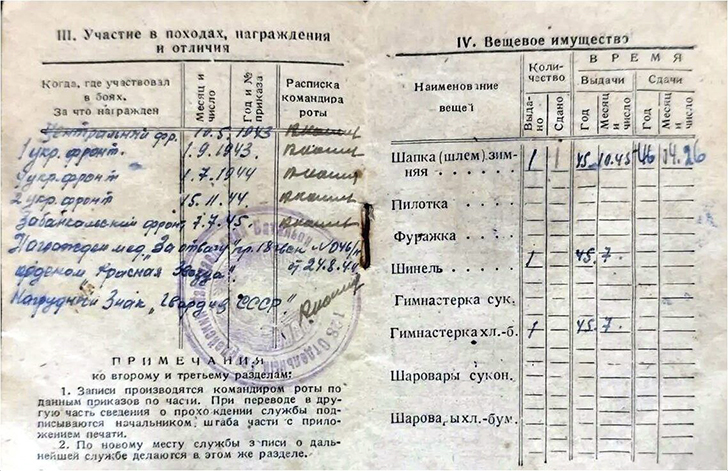 III. Участие в походах, награждения
и отличия
Когда, где участвовал
в боях.
За что награжден
Месяц и
число
Год и №
приказа
Расписка
командира
роты
Центральный фр. 10.5.1943
1 укр. фронт. 1.9.1943.
1 укр. фронт 1.7.1944
2 укр. фронт 15.11.44.
Забайкальский фронт 7.7.45.
Награжден мед. „За отвагу" пр. 18
от 24.8.44
орденом „Красная Звезда".
Нагрудный Знак „Гвардия СССР".
ПРИМЕЧАНИЯ
ко второму и третьему разделам:
1. Записи производятся командиром роты по
данным приказов по части. При переводе в дру-
гую часть сведения о прохождении службы под-
писываются начальником штаба части с прило-
жением печати.
2. По новому месту службы з писи о даль-
нейшей службе делаются в этом же разделе.
IV. Вещевое имущество
Наименование
вещей
Коли-
чество
ВРЕМЯ
Выдачи
Сдачи
Выда-
но
Сдано
Год
Месяц
и число
Год
Месяц
и число
Шапка (шлем) зим-
няя 1 1 45 10.45 46 04.26
Пилотка
Фуражка
Шинель 1 45. 7.
Гимнастерка сук.
Гимнастерка хл.-б. 1 45. 7
Шаровары сукон.
Шарова ы хл.-бум.